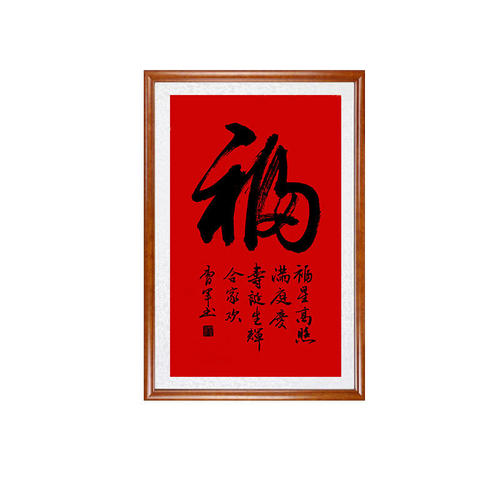 福
福星高照
满庭庆
寿诞生辉
合家欢